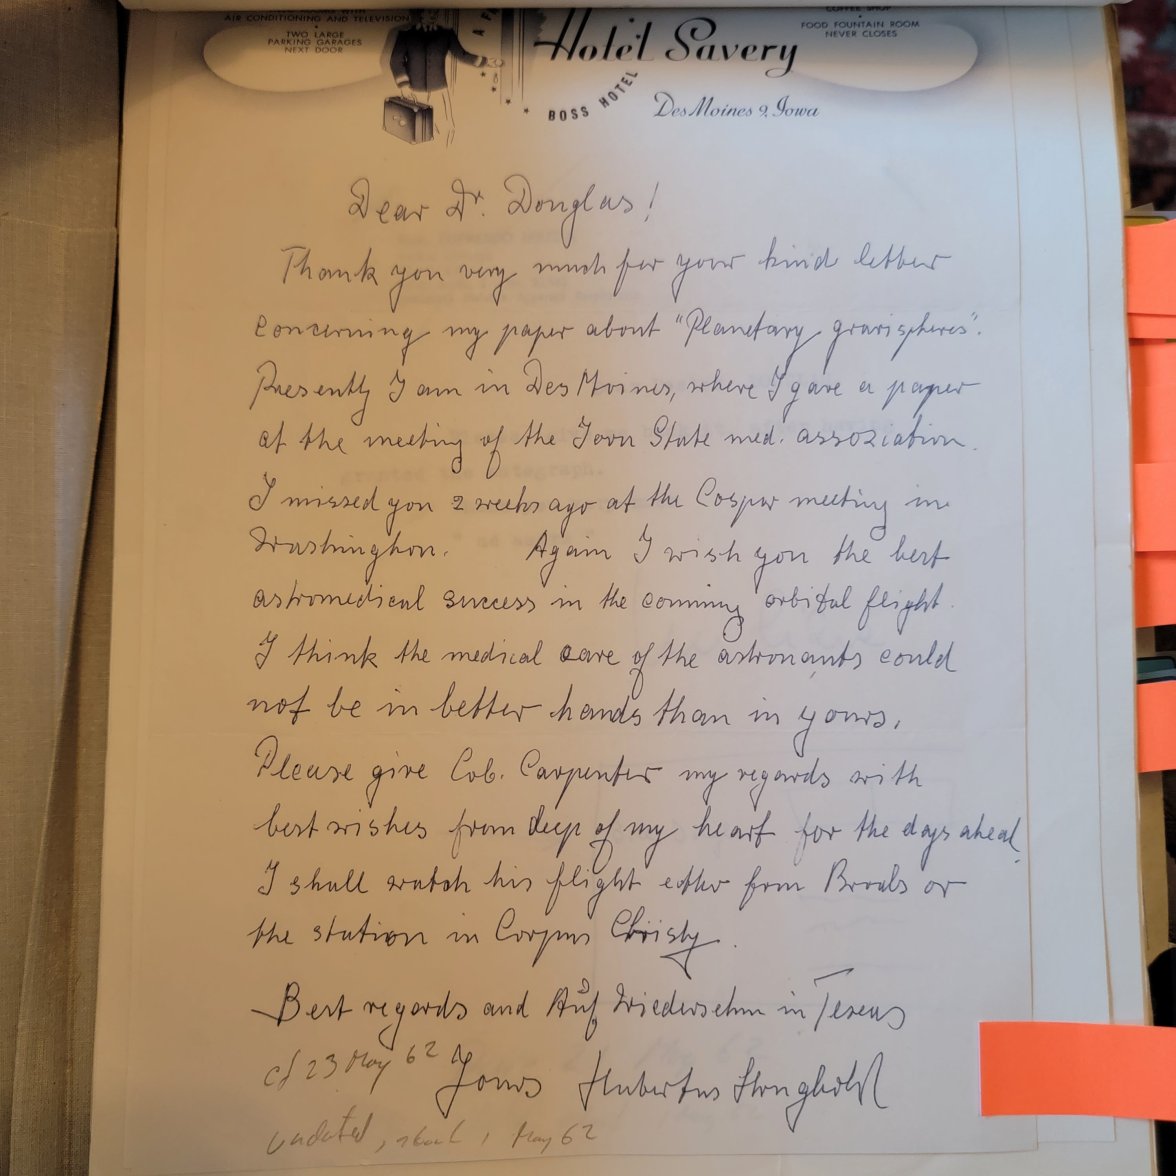 AIR CONDITIONING AND TELEVISION
TWO LARGE
PARKING GARAGES
NEXT DOOR
A FA
Hotel Savery
BOSS HOTEL
COFFEE SHOP
FOOD FOUNTAIN ROOM
NEVER CLOSES
Des Moines 9, Iowa
Dear Dr. Douglas!
Thank you very much for your kind letter
concerning my paper about "Planetary gravispheres".
Presently I am in Des Moines, where I gave a paper
at the meeting of the Iowa State med. assoziation.
I missed you 2 weeks ago at the Cospar meeting in
Washington. Again I wish you the best
astromedical success in the comming orbital flight.
I think the medical care of the astronauts could
not be in better hands than in yours.
Please give Col. Carpenter my regards with
best wishes from deep of my heart for the days ahead.
I shall watch his flight either from Brooks or
the station in Corpus Christy.
Best regards and Auf Wiedersehn in Texas
cf 23 May 62
Yours Hubertus Strughold
undated, May 62